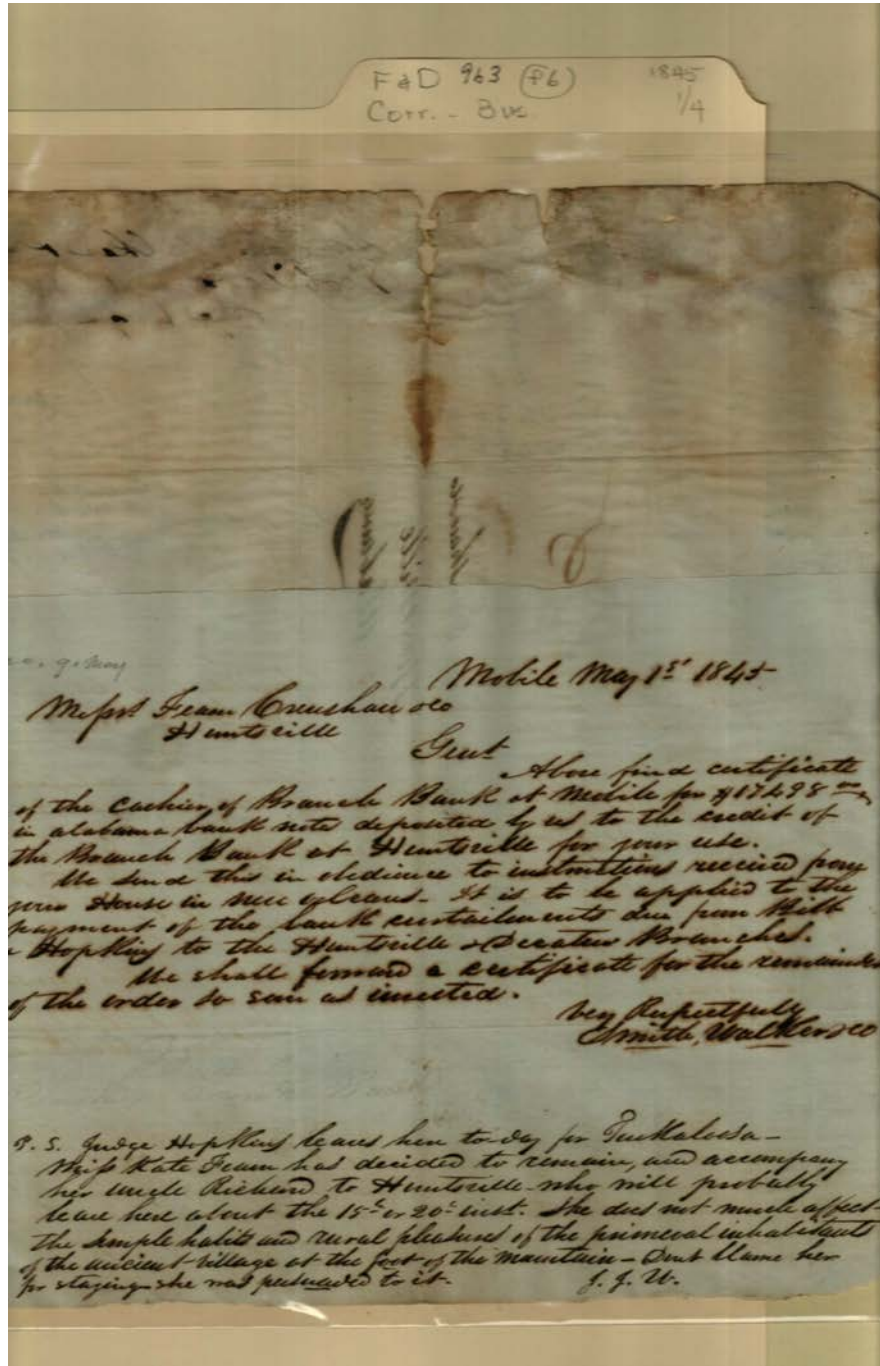 F & D 963 (f6) 1845
Corr. - Bus. 1/4
Mobile May 1st 1845
Messrs Fearn Crenshaw & Co
Huntsville
Gent
Above find certificate
of the cashier of Branch Bank at Mobile for $17498
in alabama bank note deposited by us to the credit of
the Branch Bank at Huntsville for your use.
We send this in obedience to instructions received from
your House in new orleans. It is to be applied to the
payment of the bank curtailments due from Bibb
& Hopkins to the Huntsville & Decatur Branches.
We shall forward a certificate for the remainder
of the order so soon as invested.
Very Respectfully
Smith, Walker & Co
P. S. Judge Hopkins leaves here to-day for Tuskaloosa -
Miss Kate Fearn has decided to remain, and accompany
her uncle Richard to Huntsville - who will probably
leave here about the 15th or 20th inst. She does not much affect
the simple habits and rural pleasures of the primeval inhabitants
of the ancient village at the foot of the mountain - Dont blame her
for staying - she was persuaded to it. J. J. W.